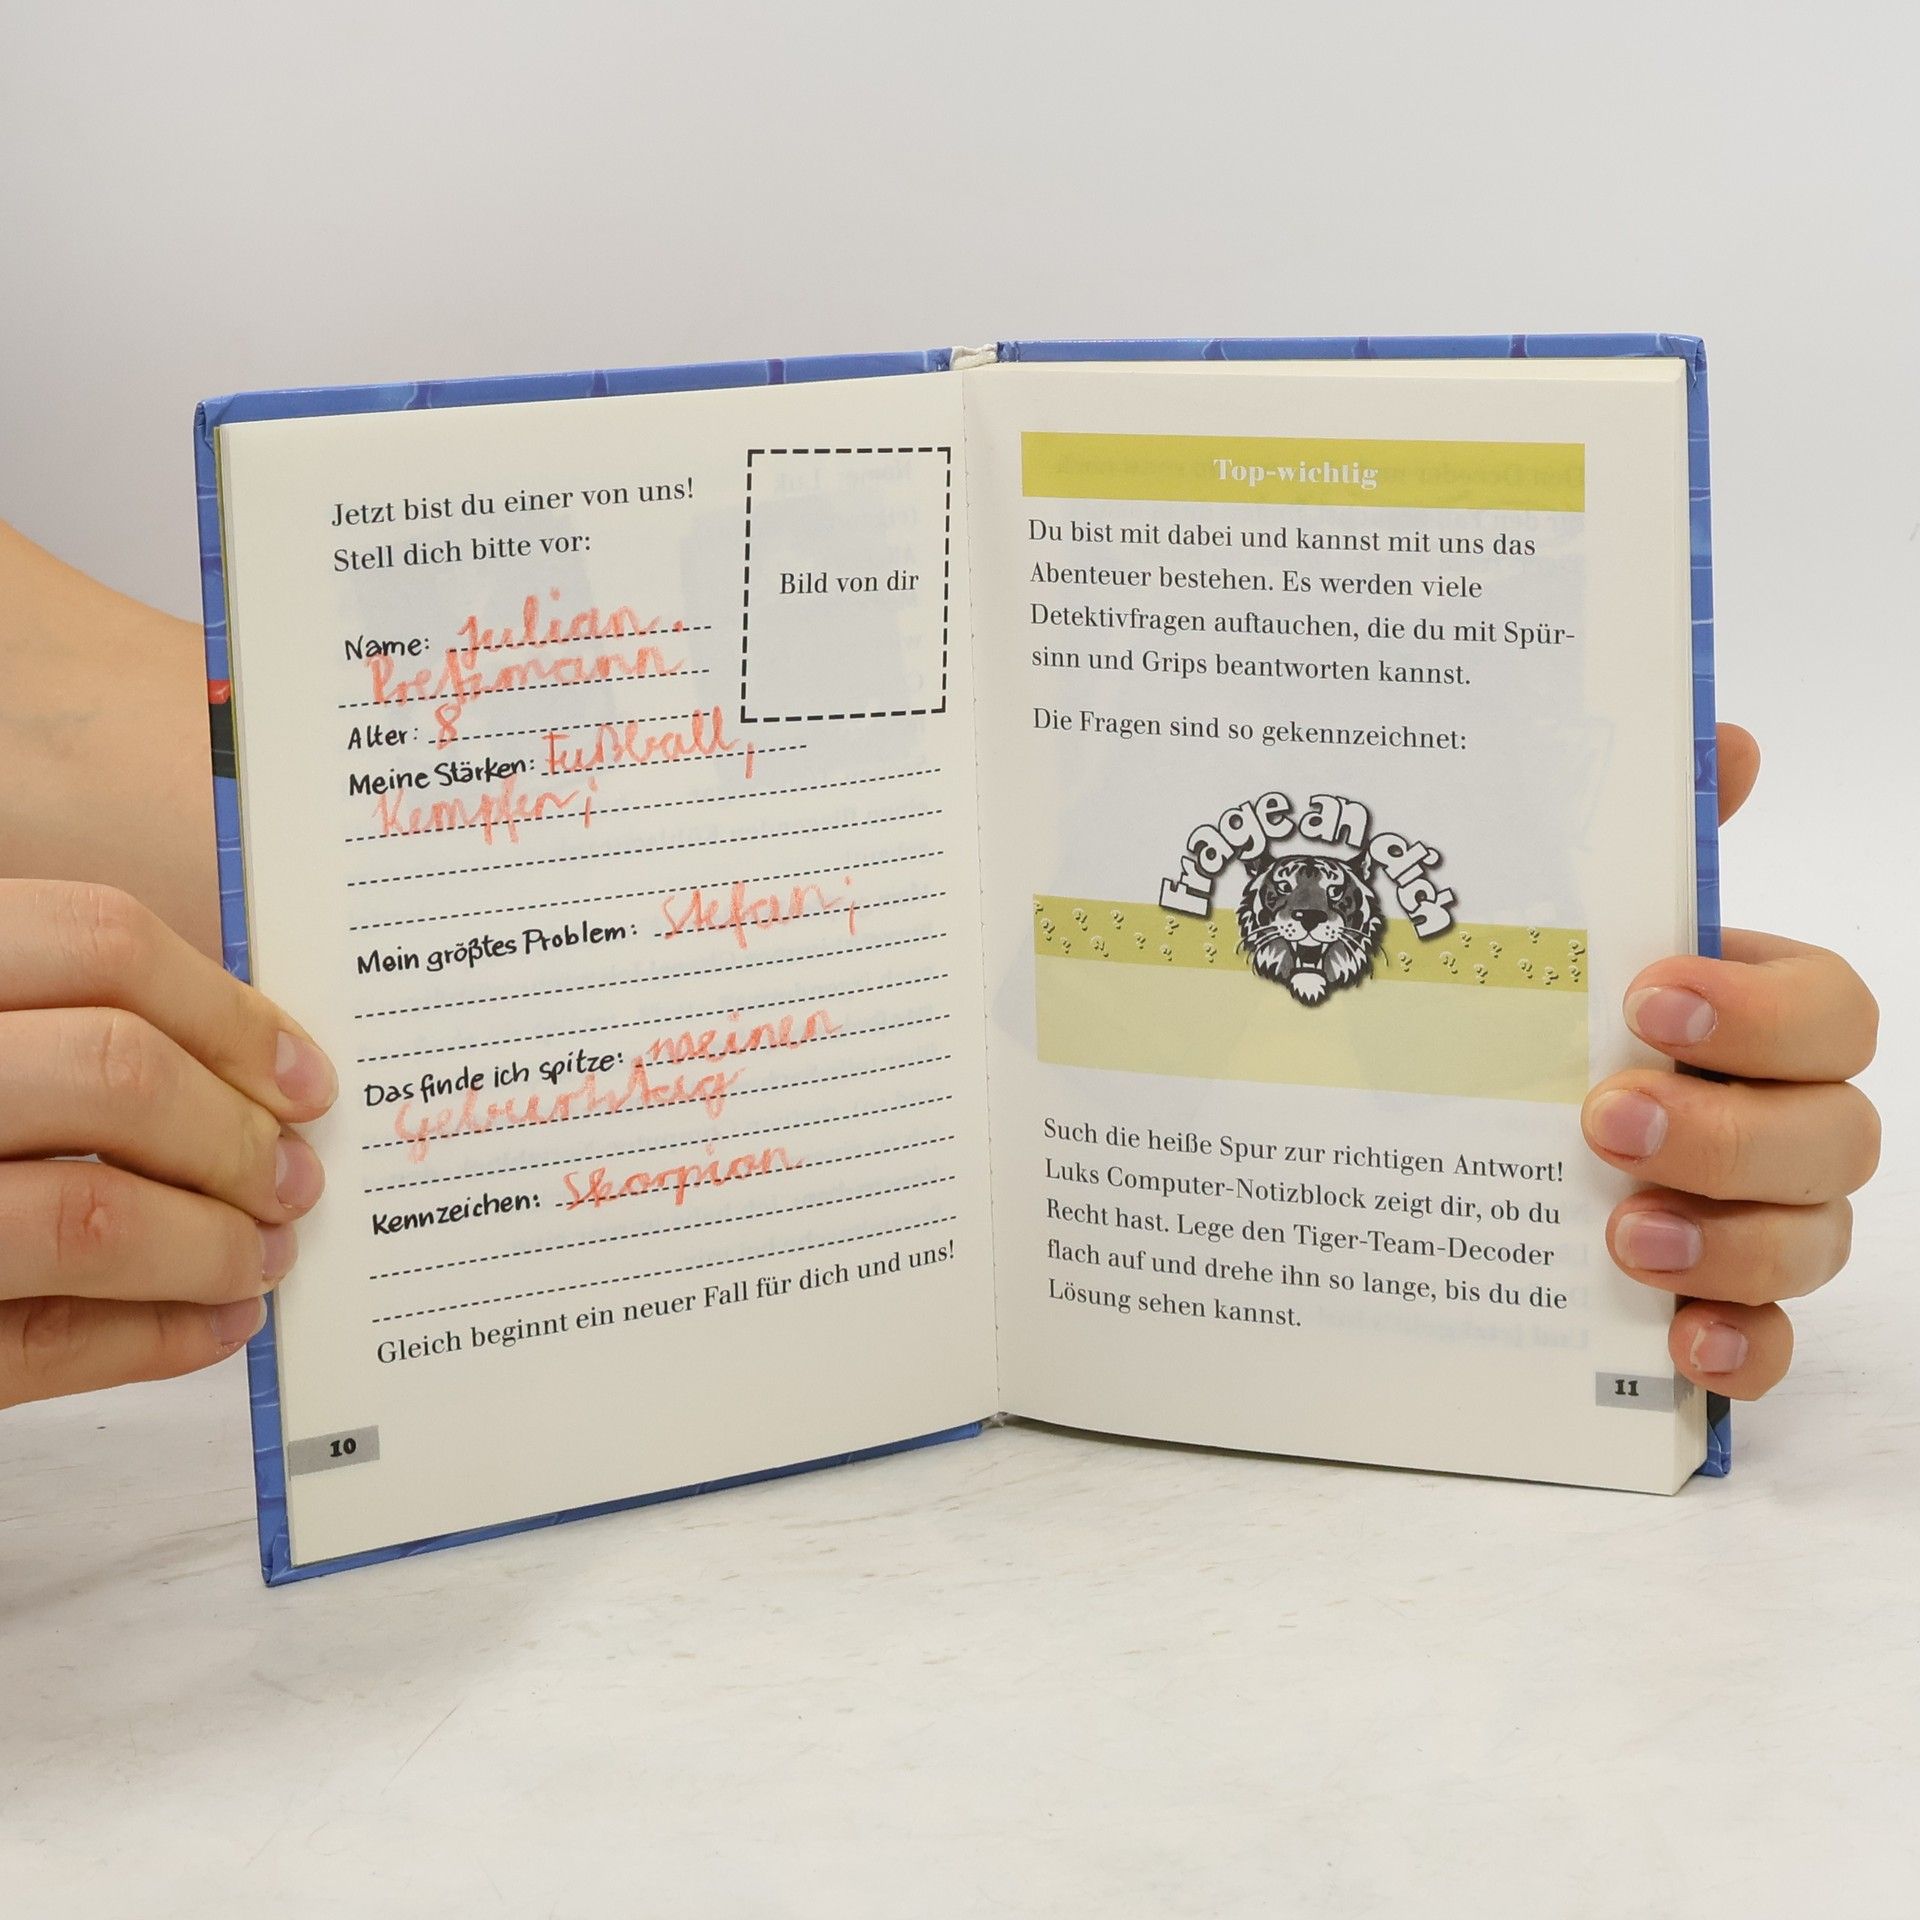 Jetzt bist du einer von uns!
Stell dich bitte vor:
Bild von dir
Name: Julian.
Pretzmann
Alter: 8
Meine Stärken: Fußball,
Kempfen;
Mein größtes Problem: Stefan;
Das finde ich spitze: meinen
Geburtstag
Kennzeichen: Skorpion
Gleich beginnt ein neuer Fall für dich und uns!
10
Top-wichtig
Du bist mit dabei und kannst mit uns das
Abenteuer bestehen. Es werden viele
Detektivfragen auftauchen, die du mit Spür-
sinn und Grips beantworten kannst.
Die Fragen sind so gekennzeichnet:
Frage an dich
Such die heiße Spur zur richtigen Antwort!
Luks Computer-Notizblock zeigt dir, ob du
Recht hast. Lege den Tiger-Team-Decoder
flach auf und drehe ihn so lange, bis du die
Lösung sehen kannst.
11